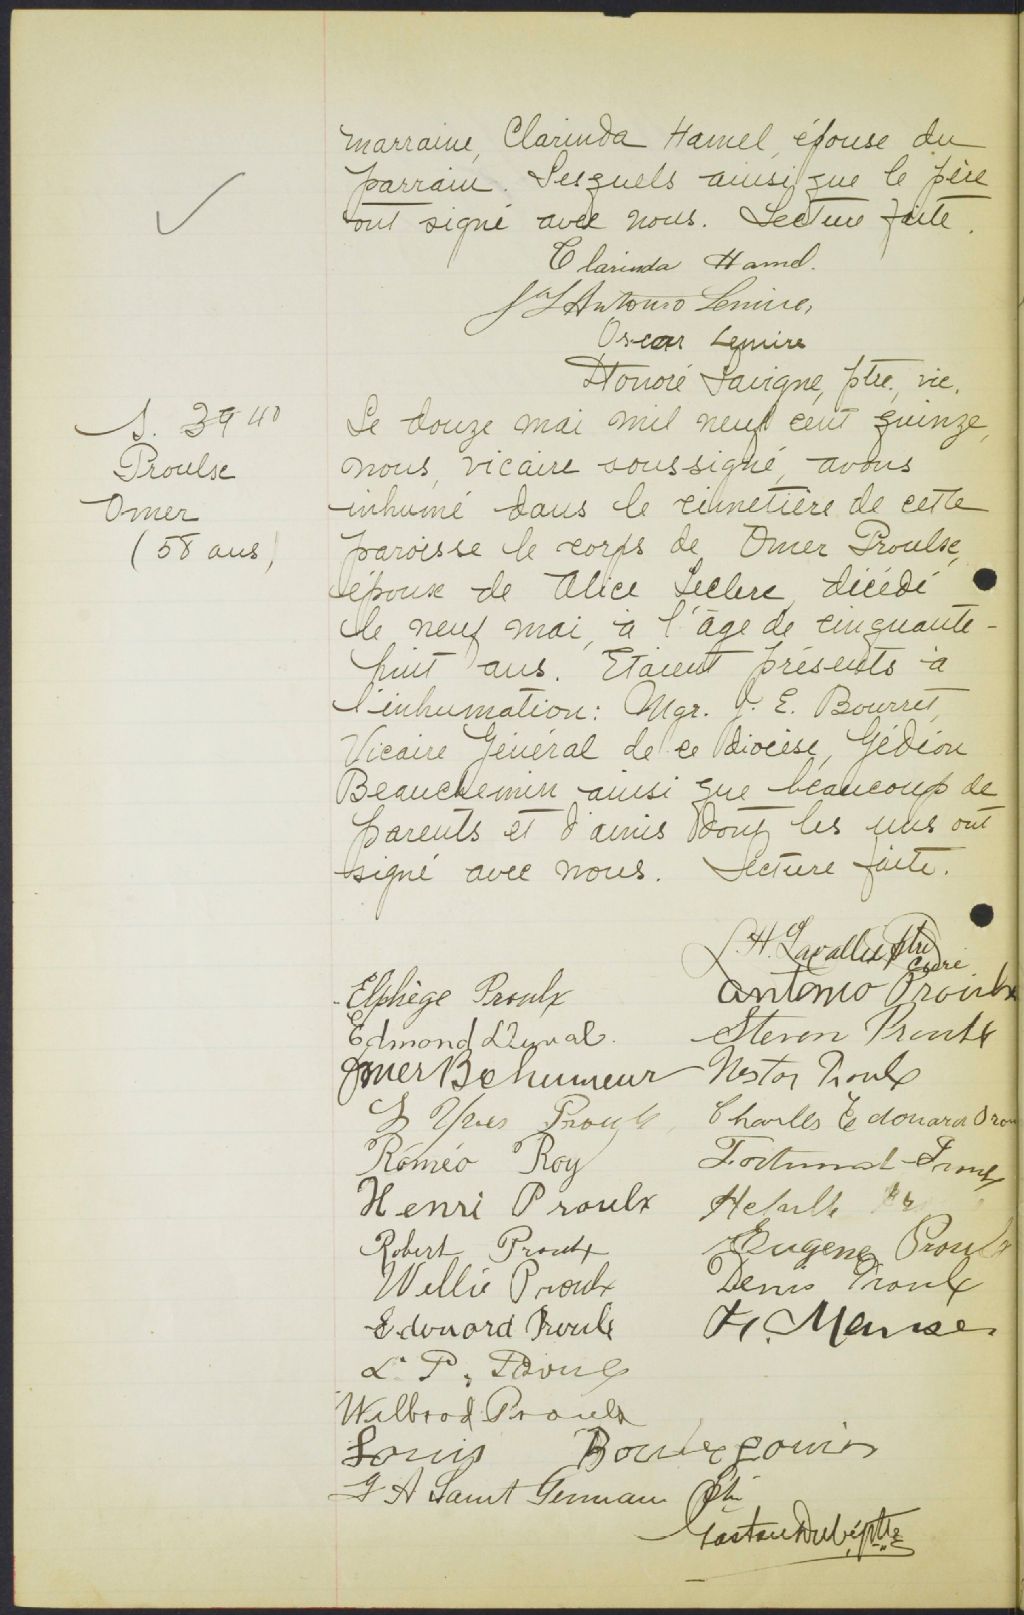 marraine, Clarinda Hamel, épouse du
parrain. Lesquels ainsi que le père
ont signé avec nous. Lecture faite.
Clarinda Hamel.
Antonio Lemire,
Oscar Lemire
Honoré Lavigne, ptre, vic.
S. 39 40
Proulx
Omer
(58 ans)
Le douze mai mil neuf cent quinze,
nous, vicaire soussigné, avons
inhumé dans le cimetière de cette
paroisse le corps de Omer Proulx,
époux de Alice Leclerc, décédé
le neuf mai, à l'âge de cinquante-
huit ans. Etaient présents à
l'inhumation: Mgr. J. E. Bourret,
Vicaire Général de ce diocèse, Gédéon
Beauchemin ainsi que beaucoup de
parents et d'amis dont les uns ont
signé avec nous. Lecture faite.
L. H. Lavallée ptre
curé
Elphège Proulx Antonio Proulx
Edmond Duval. Steven Proulx
Omer Bchumeur Nestor Proulx
Yves Proulx, Charles Edouard Prou
Roméo Roy Fortunat Proulx
Henri Proulx
Robert Proulx Eugene Proulx
Willie Proulx Denis Proulx
Edouard Proulx
L. P. Proulx
Wilbrod Proulx
Louis Bourgeouis
J A Saint Germain Ptr